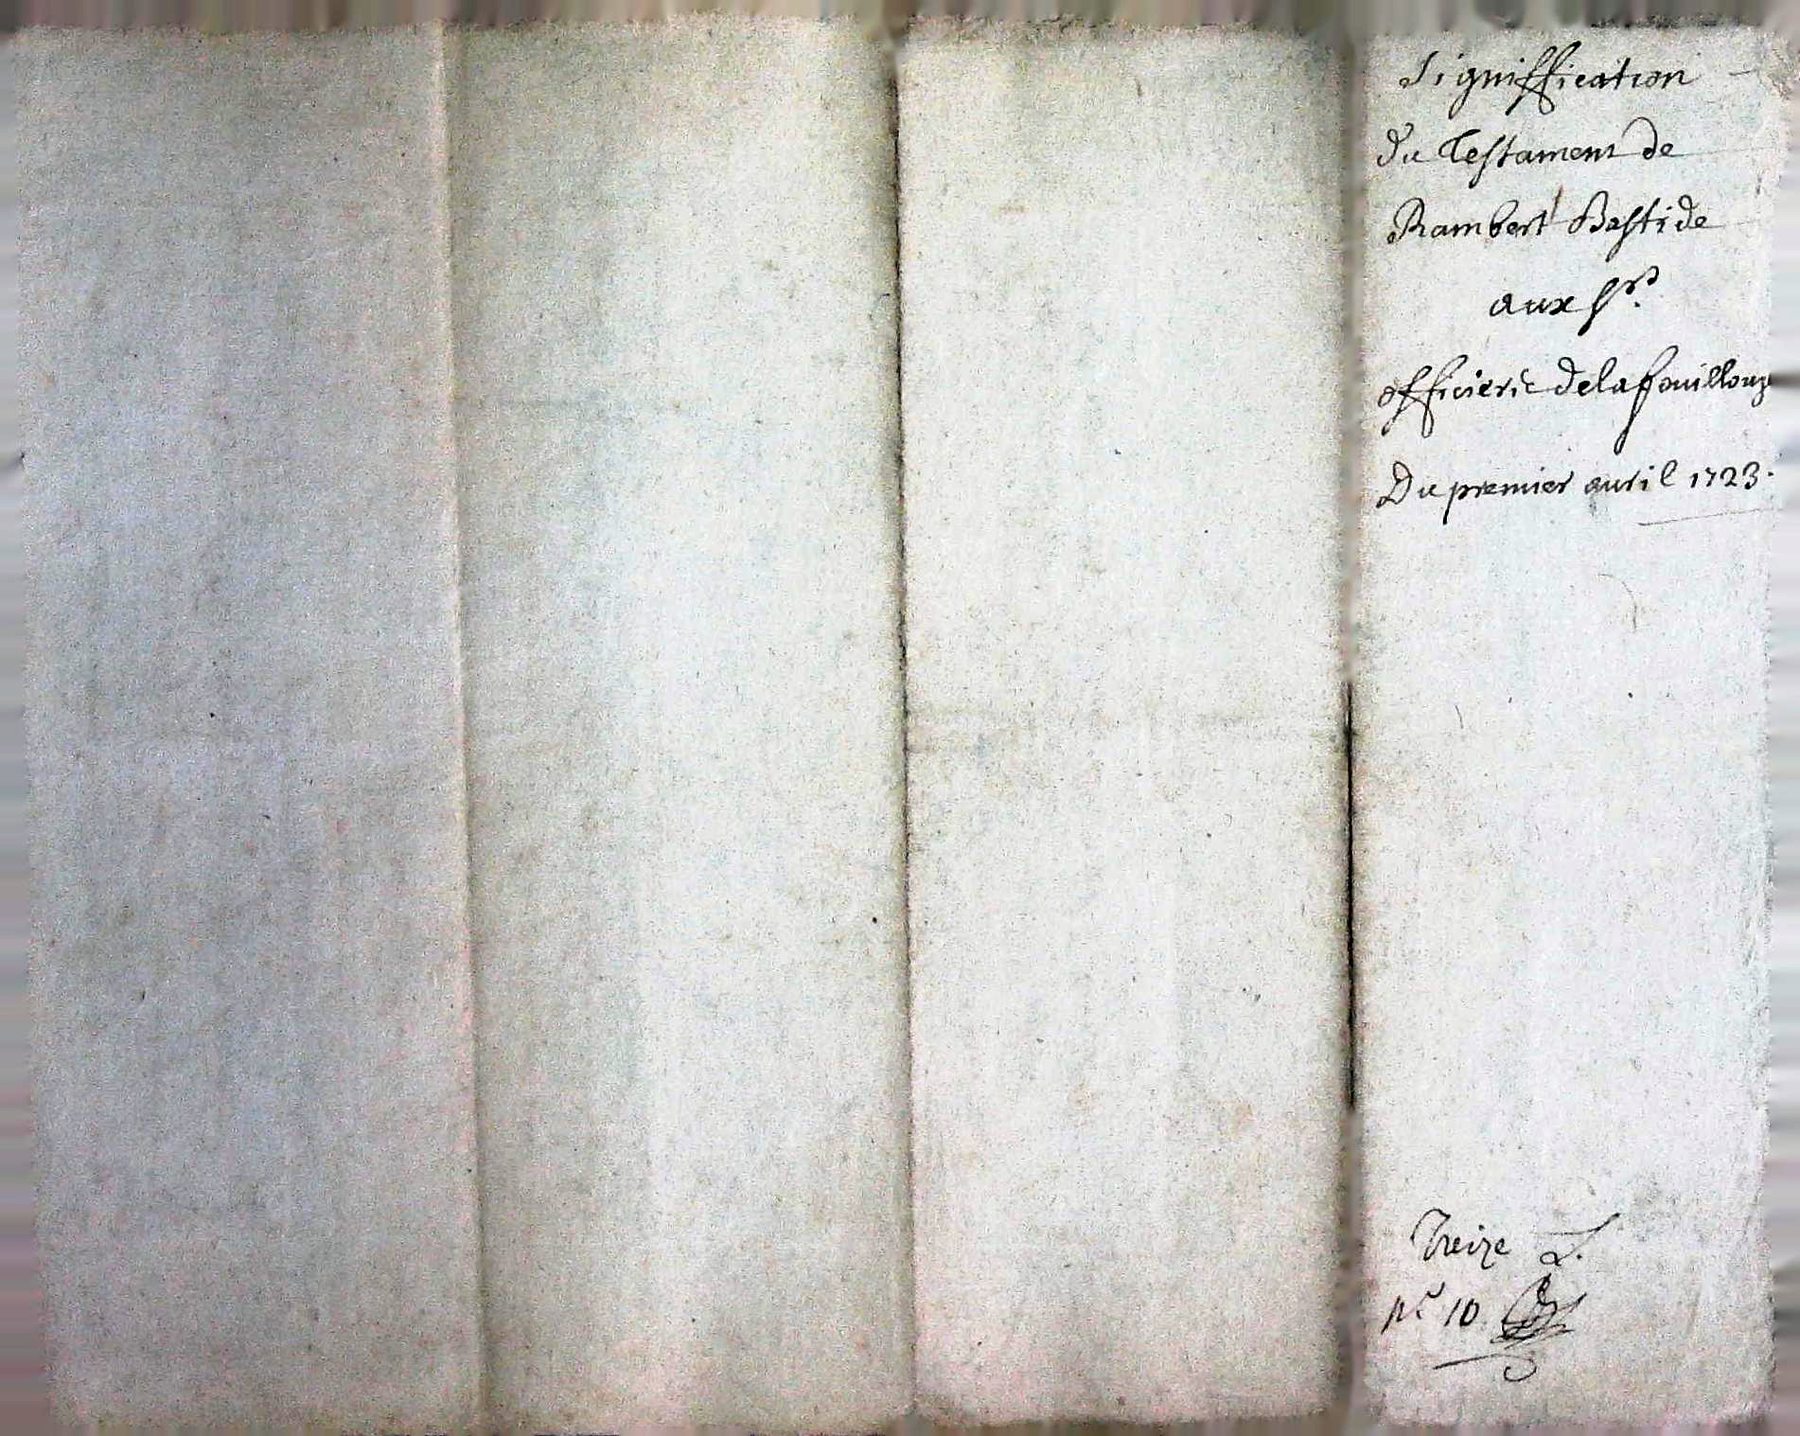 Signiffication
du Testament de
Rambert Bastide
aux Srs
officiers de la fouillouze
Du premier auril 1723.
Treize L.
pr 10